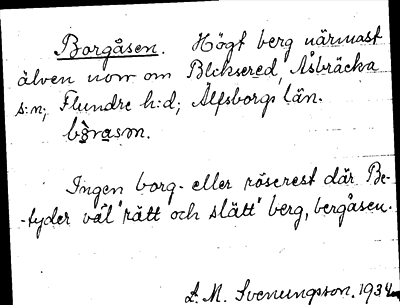 Borgåsen. Högt berg närmast
älven norr om Bleksered, Åsbräcka
s:n; Flundre h:d; Älfsborgs län.
bòrasən.
Ingen borg- eller rösrest där Be-
-tyder väl "rätt och slätt" berg, bergåsen.
L. M. Svenungsson. 1934